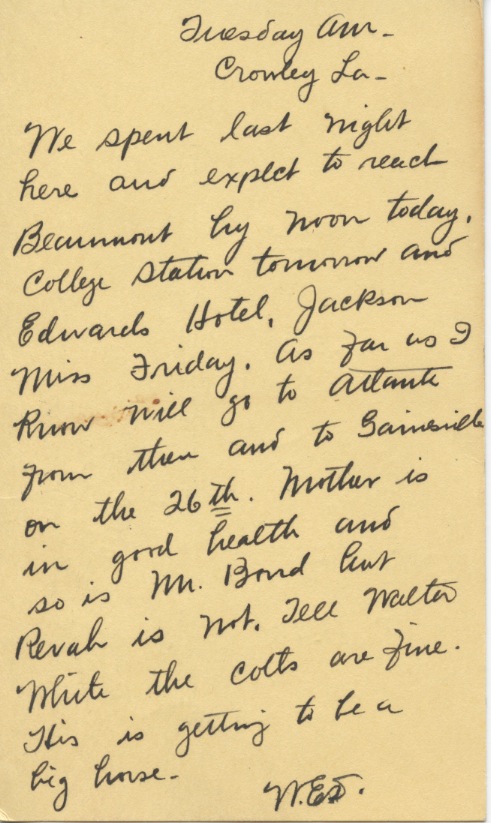 Tuesday Am -
Crowley La -
We spent last night
here and expect to reach
Beaumont by noon today.
College Station tomorrow and
Edwards Hotel, Jackson
Miss Friday. As far as I
know will go to Atlanta
from then and to Gainesville
on the 26th. Mother is
in good health and
so is Mr. Bond but
Revah is not. Tell Walter
White the colts are fine.
His is getting to be a
big horse -